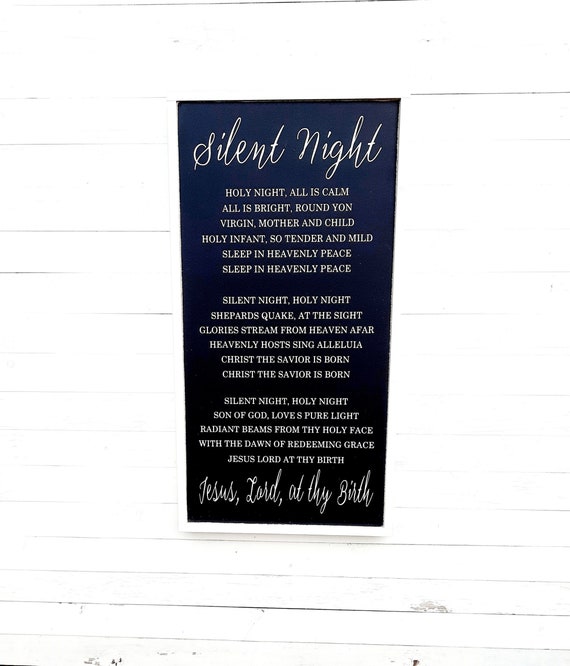 Silent Night
HOLY NIGHT, ALL IS CALM
ALL IS BRIGHT, ROUND YON
VIRGIN, MOTHER AND CHILD
HOLY INFANT, SO TENDER AND MILD
SLEEP IN HEAVENLY PEACE
SLEEP IN HEAVENLY PEACE
SILENT NIGHT, HOLY NIGHT
SHEPARDS QUAKE, AT THE SIGHT
GLORIES STREAM FROM HEAVEN AFAR
HEAVENLY HOSTS SING ALLELUIA
CHRIST THE SAVIOR IS BORN
CHRIST THE SAVIOR IS BORN
SILENT NIGHT, HOLY NIGHT
SON OF GOD, LOVE S PURE LIGHT
RADIANT BEAMS FROM THY HOLY FACE
WITH THE DAWN OF REDEEMING GRACE
JESUS LORD AT THY BIRTH
Jesus, Lord, at thy Birth